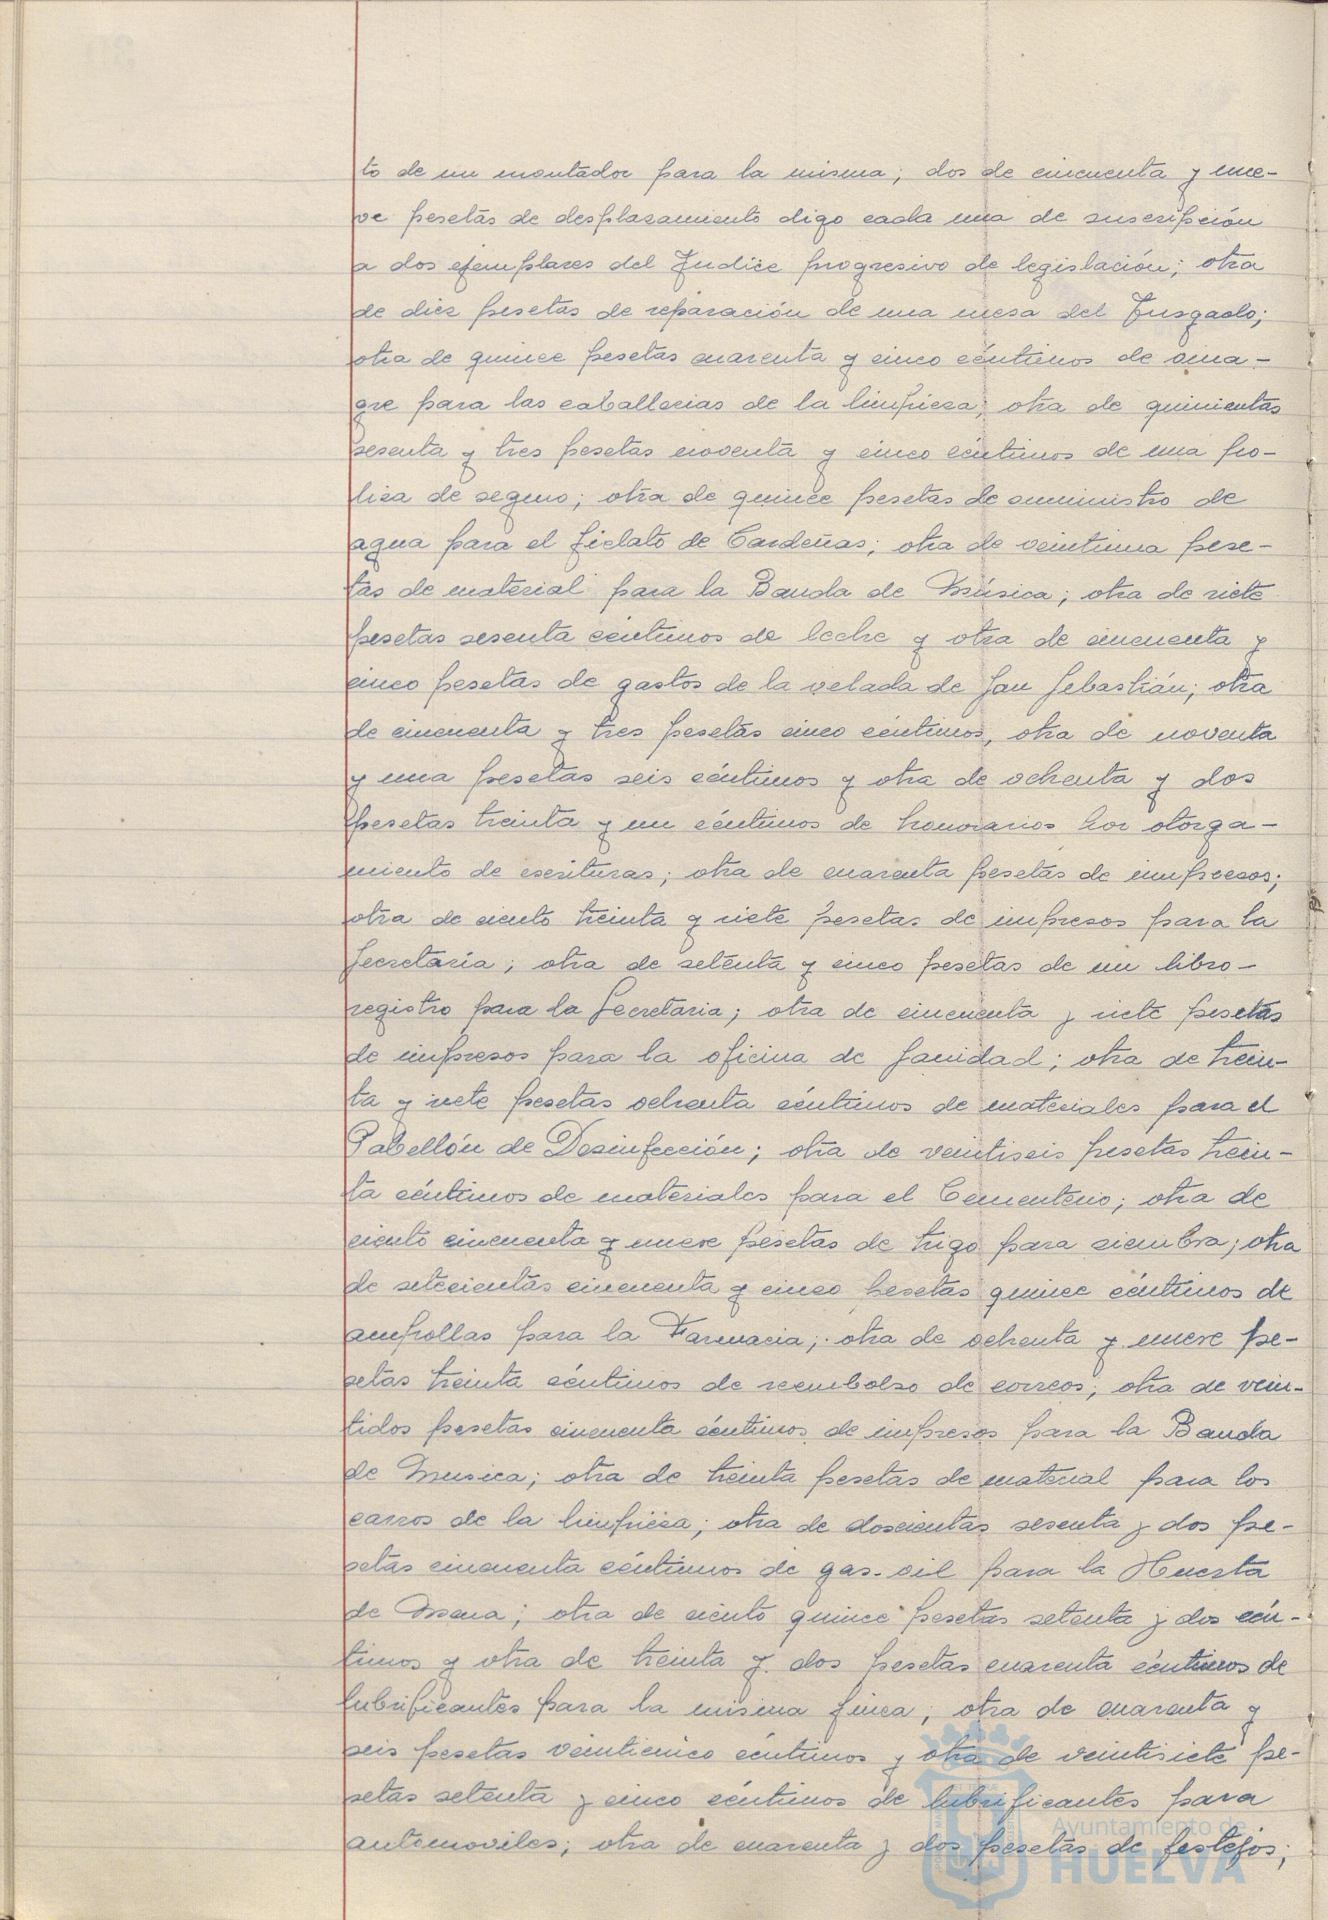 to de un montador para la misma; dos de cincuenta y nue-
ve pesetas de desplazamiento digo cada una de suscripción
a dos ejemplares del Indice progresivo de legislación; otra
de diez pesetas de reparación de una mesa del Juzgado;
otra de quince pesetas cuarenta y cinco céntimos de vina-
gre para las caballerias de la limpieza; otra de quinientas
sesenta y tres pesetas noventa y cinco céntimos de una po-
liza de seguro; otra de quince pesetas de suministro de
agua para el fielato de Cardeñas; otra de veintiuna pese-
tas de material para la Banda de Música; otra de siete
pesetas sesenta céntimos de leche y otra de cincuenta y
cinco pesetas de gastos de la velada de San Sebastián; otra
de cincuenta y tres pesetas cinco céntimos, otra de noventa
y una pesetas seis céntimos y otra de ochenta y dos
pesetas treinta y un céntimos de honorarios por otorga-
miento de escrituras; otra de cuarenta pesetas de impresos;
otra de ciento treinta y siete pesetas de impresos para la
Secretaría; otra de setenta y cinco pesetas de un libro-
registro para la Secretaria; otra de cincuenta y siete pesetas
de impresos para la oficina de Sanidad; otra de trein-
ta y siete pesetas ochenta céntimos de materiales para el
Pabellón de Desinfección; otra de veintiseis pesetas trein-
ta céntimos de materiales para el Cementerio; otra de
ciento cincuenta y nueve pesetas de trigo para siembra; otra
de setecientas cincuenta y cinco pesetas quince céntimos de
ampollas para la Farmacia; otra de ochenta y nueve pe-
setas treinta céntimos de reembolso de correos; otra de vein-
tidos pesetas cincuenta céntimos de impresos para la Banda
de Musica; otra de treinta pesetas de material para los
carros de la limpieza; otra de doscientas sesenta y dos pe-
setas cincuenta céntimos de gas-oil para la Huerta
de Mena; otra de ciento quince pesetas setenta y dos cén-
timos y otra de treinta y dos pesetas cuarenta céntimos de
lubrificantes para la misma finca, otra de cuarenta y
seis pesetas veinticinco céntimos y otra de veintisiete pe-
setas setenta y cinco céntimos de lubrificantes para
automoviles; otra de cuarenta y dos pesetas de festejos;
Ayuntamiento de
HUELVA